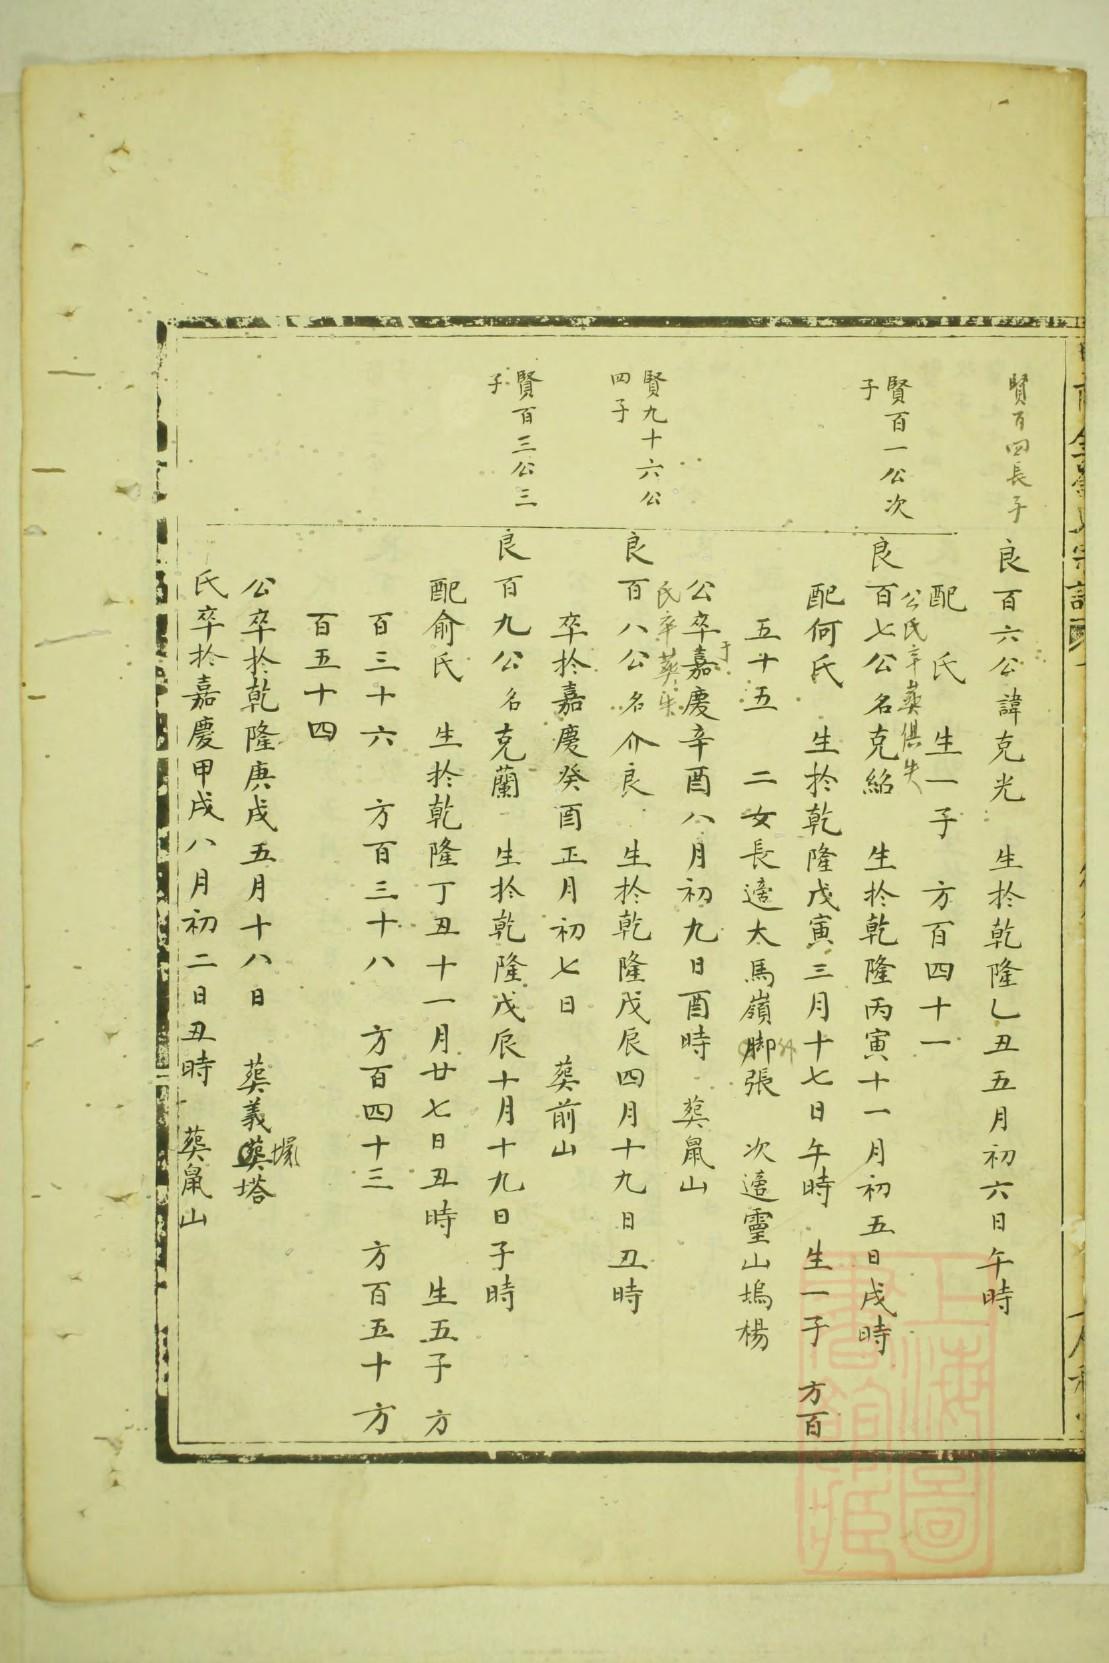 賢百四長子
良百六公諱克光　生於乾隆乙丑五月初六日午時
配　氏　生一子　方百四十一
公氏卒葬俱失
賢百一公次
子
良百七公名克紹　生於乾隆丙寅十一月初五日戌時
配何氏　生於乾隆戊寅三月十七日午時　生一子　方百
五十五　二女長適太馬嶺脚張　次適靈山塢楊
公卒于嘉慶辛酉八月初九日酉時　葬鼠山
氏卒葬失
賢九十六公
四子
良百八公名介良　生於乾隆戊辰四月十九日丑時
卒於嘉慶癸酉正月初七日　葬前山
賢百三公三
子
良百九公名克蘭　生於乾隆戊辰十月十九日子時
配俞氏　生於乾隆丁丑十一月廿七日丑時　生五子　方
百三十六　方百三十八　方百四十三　方百五十　方
百五十四
公卒於乾隆庚戌五月十八日　葬義塚塔
氏卒於嘉慶甲戌八月初二日丑時　葬鼠山
上海圖
書館藏